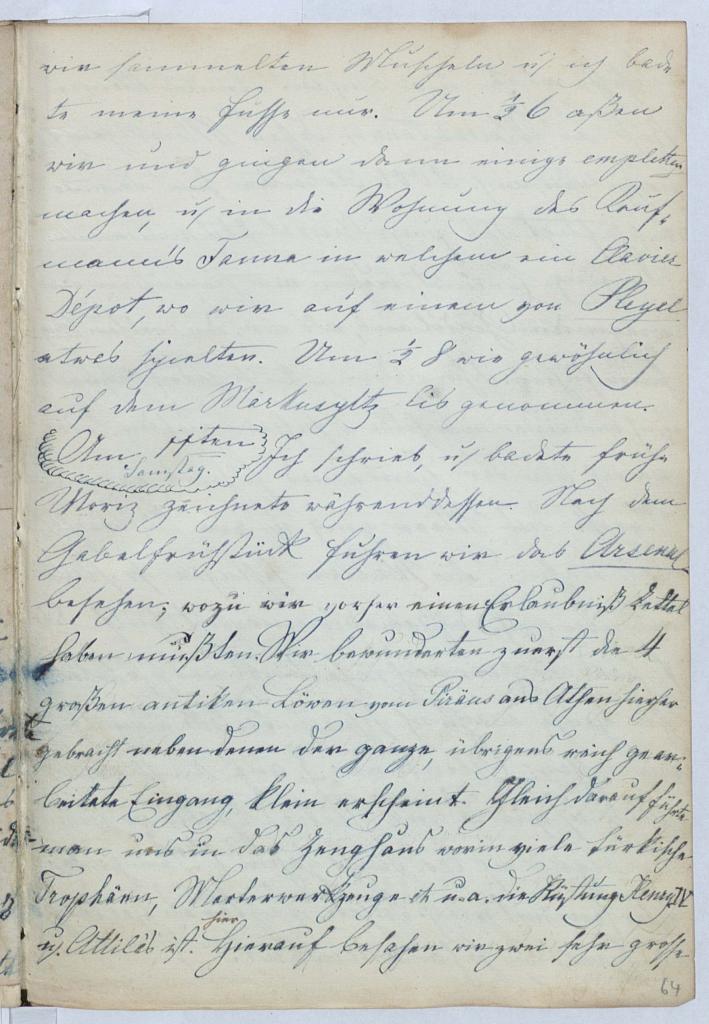 wir sammelten Muscheln u/ ich bade
te meine Füsse nur. Um ½ 6 aßen
wir und gingen dann einige empletten
machen, u/ in die Wohnung des Kauf-
mann's in welchem ein Clavier
Dépot, wo wir auf einem von Pleyel
etwas spielten. Um ½ 8 wie gewöhnlich
auf dem Markusplatz Eis genommen.
Am 11ten Ich schrieb, u/ badete früh
Samstag.
Moriz zeichnete währenddessen. Nach dem
Gabelfrühstück fuhren wir das Arsenal
besehen; wozu wir vorher einen Erlaubniß Zettel
haben mußten. Wir bewunderten zuerst die 4
großen antiken Löwen vom Piräus aus Athen hierher
gebracht neben denen der ganze, übrigens reich gear-
beitete Eingang, klein erscheint. Gleich darauf führte
man uns in das Zeughaus worin viele türkische
Trophäen, Marterwerkzeuge etc u. a. die Rüstung Henry IV
u. Attila's hier ist. Hierauf besahen wir zwei sehr grosse
64